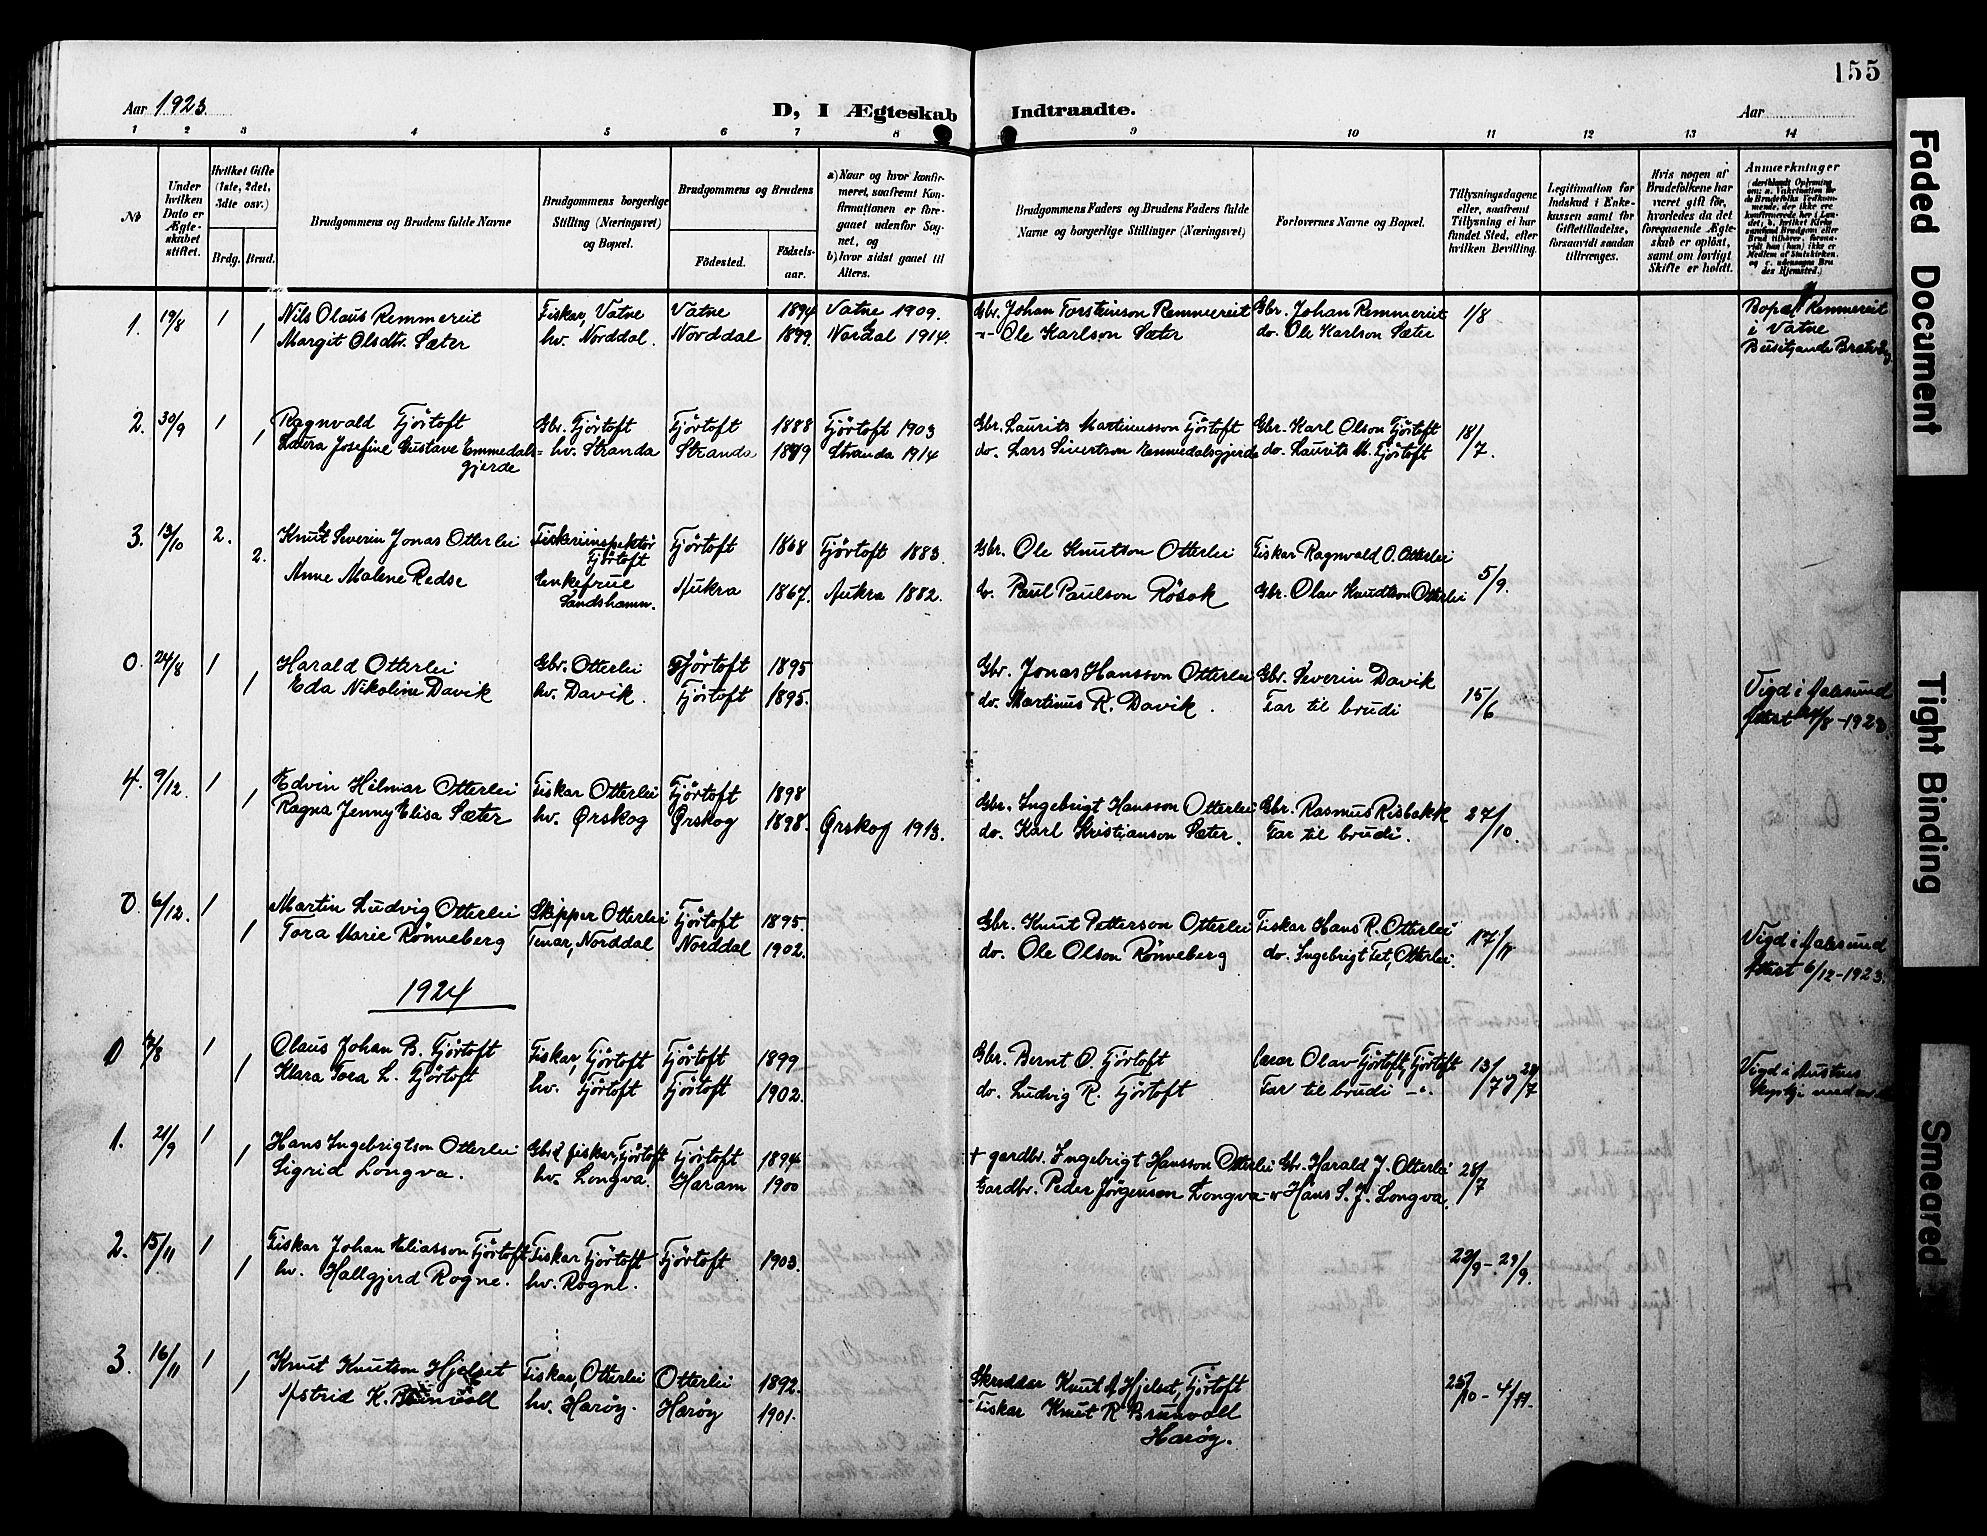 155
Aar 1923.
D, I Ægteskab Indtraadte.
Aar
1 2 3 4 5 6 7 8 9 10 11 12 13 14
No
Under hvilken Dato er Ægteskabet stiftet.
Hvilket Gifte (1ste, 2det, 3die osv.)
Brdg. Brud.
Brudgommens og Brudens fulde Navne
Brudgommens borgerlige Stilling (Næringsvei) og Bopæl.
Brudgommens og Brudens
Födested. Födselsaar.
a) Naar og hvor konfirmeret, saafremt Konfirmationen er foregaaet udenfor Sognet, og
b) hvor sidst gaaet til Alters.
Brudgommens Faders og Brudens Faders fulde Navne og borgerlige Stillinger (Næringsvei)
Forlovernes Navne og Bopæl.
Tillysningsdagene eller, saafremt Tillysning ei har fundet Sted, efter hvilken Bevilling.
Legitimation for Indskud i Enkekassen samt for Giftetilladelse, forsaavidt saadan tiltrænges.
Hvis nogen af Brudefolkene har været gift för, hvorledes da det foregaaende Ægteskab er oplöst, samt om lovligt Skifte er holdt.
Anmærkninger
1. 19/8 1 Nils Olaus Remmereit Fiskar, Vatne Vatne 1894 Vatne 1909. Gbr. Johan Torsteinson Remmereit Gbr. Johan Remmereit 1/8 Bopæl Remmereit
1 Margit Olsdtr. Sæter hv. Norddal. Norddal 1899. Nordal 1914. -"- Ole Karlson Sæter do. Ole Karlson Sæter i Vatne
Busitjande Bratvåg
2. 30/9 1 Ragnvald Fjörtoft Gbr. Fjörtoft Fjörtoft 1888 Fjörtoft 1903 Gbr. Laurits Martinusson Fjörtoft Gbr. Karl Olson Fjörtoft 18/7.
1 Laura Josefine Gustave Emmedals= hv. Stranda Stranda 1899 Stranda 1914 do. Lars Sivertson Emmedalsgjerde do. Laurits M. Fjörtoft
gjerde
3. 13/10 2. Knut Severin Jonas Otterlei Fiskeriinspektör Fjörtoft Fjörtoft 1868 Fjörtoft 1883. Gbr. Ole Knutson Otterlei Fiskar Ragnvald O. Otterlei 5/9.
2. Anne Malene Redse Enkefrue Sandshamn. Aukra 1867. Aukra 1882. do. Paul Paulson Rösok Gbr. Olav Knudtson Otterlei
0. 24/8 1 Harald Otterlei Gbr. Otterlei Fjörtoft 1895 Gbr. Jonas Hansson Otterlei Gbr. Severin Davik 15/6 Vigd i Aalesund
1 Eda Nikoline Davik hv. Davik. Fjörtoft 1895. do. Martinus R. Davik. Far til brudi Attest 24/8-1923.
4. 9/12. 1 Edvin Hilmar Otterlei Fiskar Otterlei Fjörtoft 1898 Gbr. Ingebrigt Hansson Otterlei Gbr. Rasmus Risbakk 27/10.
1 Ragna Jenny Elisa Sæter hv. Ørskog Ørskog 1898. Ørskog 1913. do. Karl Kristianson Sæter. Far til brudi.
0. 6/12. 1 Martin Ludvig Otterlei Skipper Otterlei Fjörtoft 1895. Gbr. Knut Petterson Otterlei Fiskar Hans R. Otterlei 17/11
1 Tora Marie Rönneberg Tenar, Norddal Norddal 1902. do. Ole Olson Rönneberg do. Ingebrigt Tet, Otterlei. Vigd i Aalesund
Attest 6/12-1923.
1924
0 /8 1 Olaus Johan B. Fjörtoft Fiskar, Fjörtoft Fjörtoft 1899 Gbr. Bernt O. Fjörtoft Olav Fjörtoft, Fjörtoft 13/7 Vigd i Austnes
1 Klara Tora L. Fjörtoft hv. Fjörtoft Fjörtoft 1902. do. Ludvig R. Fjörtoft Far til brudi -"-
1. 21/9 1 Hans Ingebrigtson Otterlei Fjörtoft Fjörtoft 1894 + gardbr. Ingebrigt Hansson Otterlei Gbr. Harald J. Otterlei 28/7
1 Sigrid Longva. hv. Longva. Haram 1900 Gardbr. Peder Jörgenson Longva -"- Hans S. J. Longva.
2. 15/11 1 Fiskar Johan Eliasson Fjörtoft Fiskar Fjörtoft Fjörtoft 1903. 22/9 - 29/9.
1 hv. Hallgjerd Rogne. hv. Rogne.
3. 16/11 1 Knut Knutson Hjelset Fiskar, Otterlei Otterlei 1892. Skreddar Knut A Hjelset, Fjörtoft 25/10 - 4/11.
1 Astrid K. Brunvoll hv. Haröy. Haröy 1901. Fiskar Knut R Brunvoll
Haröy.
Faded Document
Tight Binding
Smeared